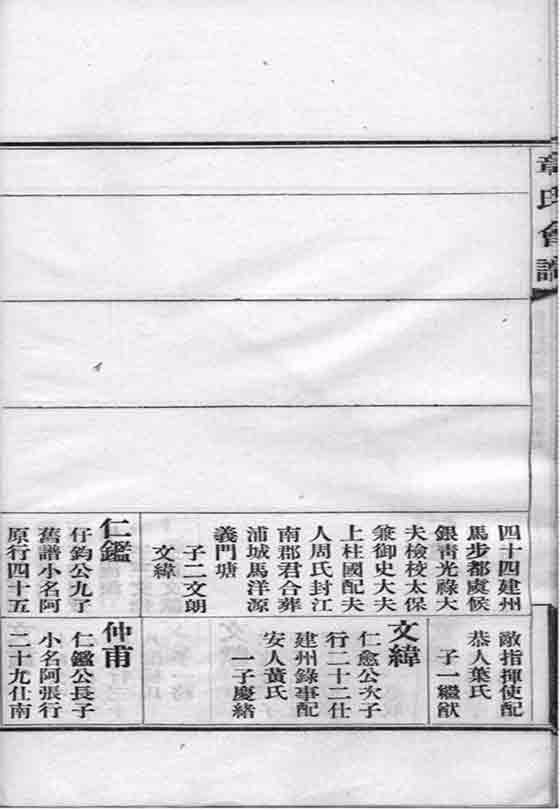 章氏會譜
四十四建州
馬步都虞候
銀青光祿大
夫檢校太保
兼御史大夫
上柱國配夫
人周氏封江
南郡君合葬
浦城馬洋源
義門塘
子二文朗
文緯
仁鑑
仔鈞公九子
舊譜小名阿
原行四十五
敵指揮使配
恭人葉氏
子一繼猷
文緯
仁愈公次子
行二十二仕
建州錄事配
安人黃氏
一子慶緒
仲甫
仁鑑公長子
小名阿張行
二十九仕南